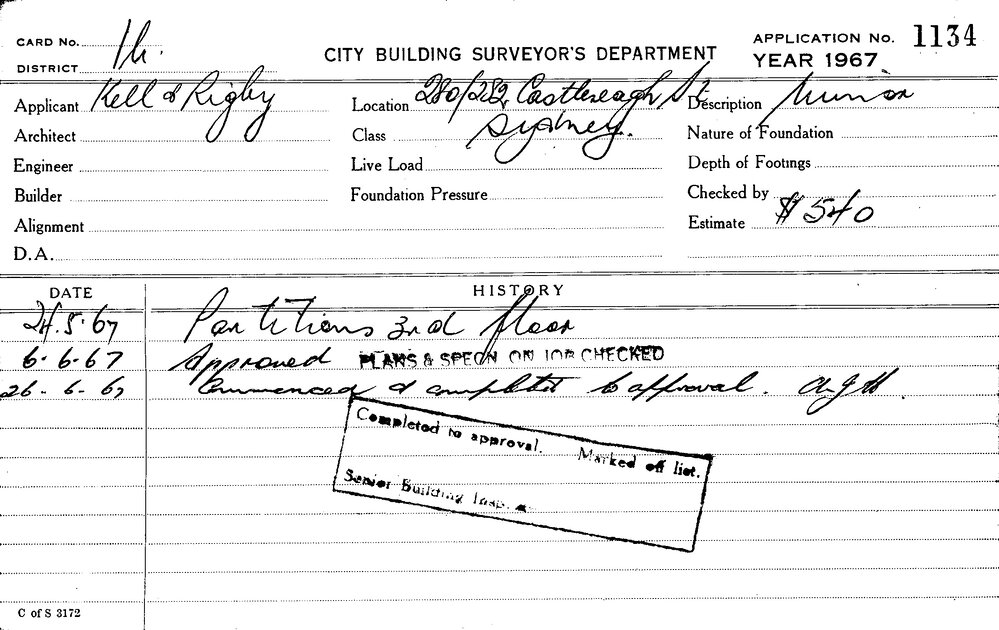 CARD No. 1h.
CITY BUILDING SURVEYOR'S DEPARTMENT
APPLICATION No. 1134
DISTRICT
YEAR 1967
Applicant Kell & Rigby
Location 280/282 Castlereagh St.
Description minor
Architect
Class Sydney.
Nature of Foundation
Engineer
Live Load
Depth of Footings
Builder
Foundation Pressure
Checked by
Alignment
Estimate $540
D.A.
DATE
HISTORY
24.5.67 Partitions 3rd floor
6.6.67 Approved PLANS & SPECN ON JOB CHECKED
26.6.67 Commenced & completed to approval.
Completed to approval. Marked off list.
Senior Building Insp.
C of S 3172